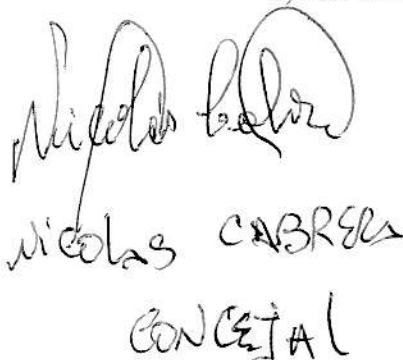 Nicolás Cabrera
NICOLAS CABRERA
CONCEJAL